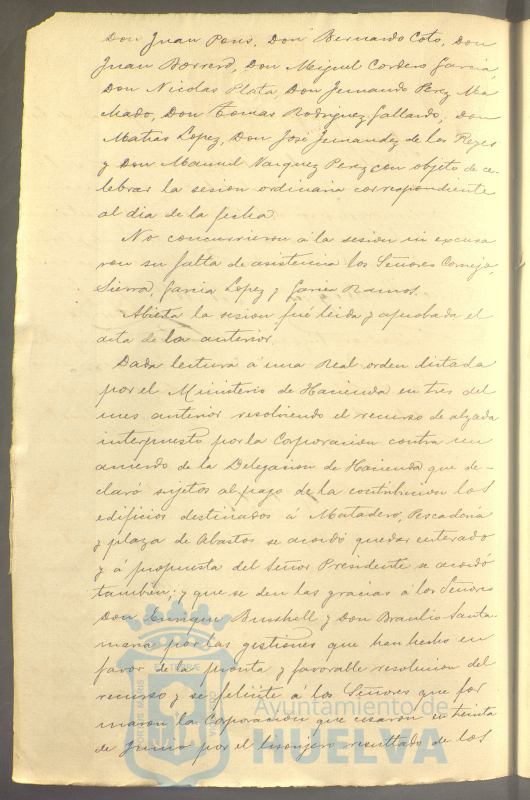 Don Juan Pons, Don Bernardo Coto, Don
Juan Borrero, Don Miguel Cordero Garcia,
Don Nicolas Plata, Don Fernando Perez Ma
chado, Don Tomas Rodriguez Gallardo, Don
Matias Lopez, Don José Fernandez de los Reyes
y Don Manuel Vazquez Perez con objeto de ce-
lebrar la sesion ordinaria correspondiente
al dia de la fecha.
No concurrieron á la sesion ni excusa
ron su falta de asistencia los Señores Cornejo,
Sierra, Garcia Lopez y Garcia Ramos.
Abierta la sesion fué leida y aprobada el
acta de la anterior.
Dada lectura á una Real orden dictada
por el Ministerio de Hacienda en tres del
mes anterior resolviendo el recurso de alzada
interpuesto por la Corporacion contra un
acuerdo de la Delegacion de Hacienda que de-
claró sujetos al pago de la contribucion los
edificios destinados á Matadero, Pescaderia
y plaza de Abastos se acordó quedar enterado
y á propuesta del Señor Presidente se acordó
tambien; y que se den las gracias á los Señores
Don Enrique Brushell y Don Braulio Santa-
maria por las gestiones que han hecho en
favor de la pronta y favorable resolucion del
recurso y se felicite á los Señores que for
maron la Corporacion que cesaron en treinta
de Junio por el lisonjero resultado de los
Ayuntamiento de
HUELVA